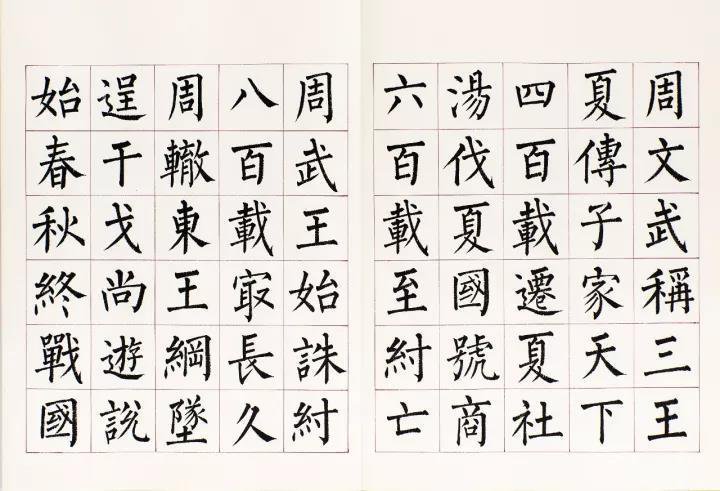 周文武稱三王
夏傳子家天下
四百載遷夏社
湯伐夏國號商
六百載至紂亡
周武王始誅紂
八百載㝡長久
周轍東王綱墜
逞干戈尚遊說
始春秋終戰國